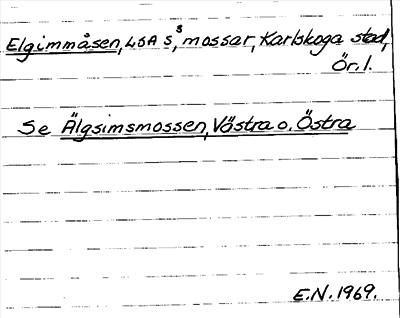 Elgimmåsen, LSA S, s mossar, Karlskoga stad,
Ör. l.
Se Älgsimsmossen, Västra o. Östra
E.N. 1969.